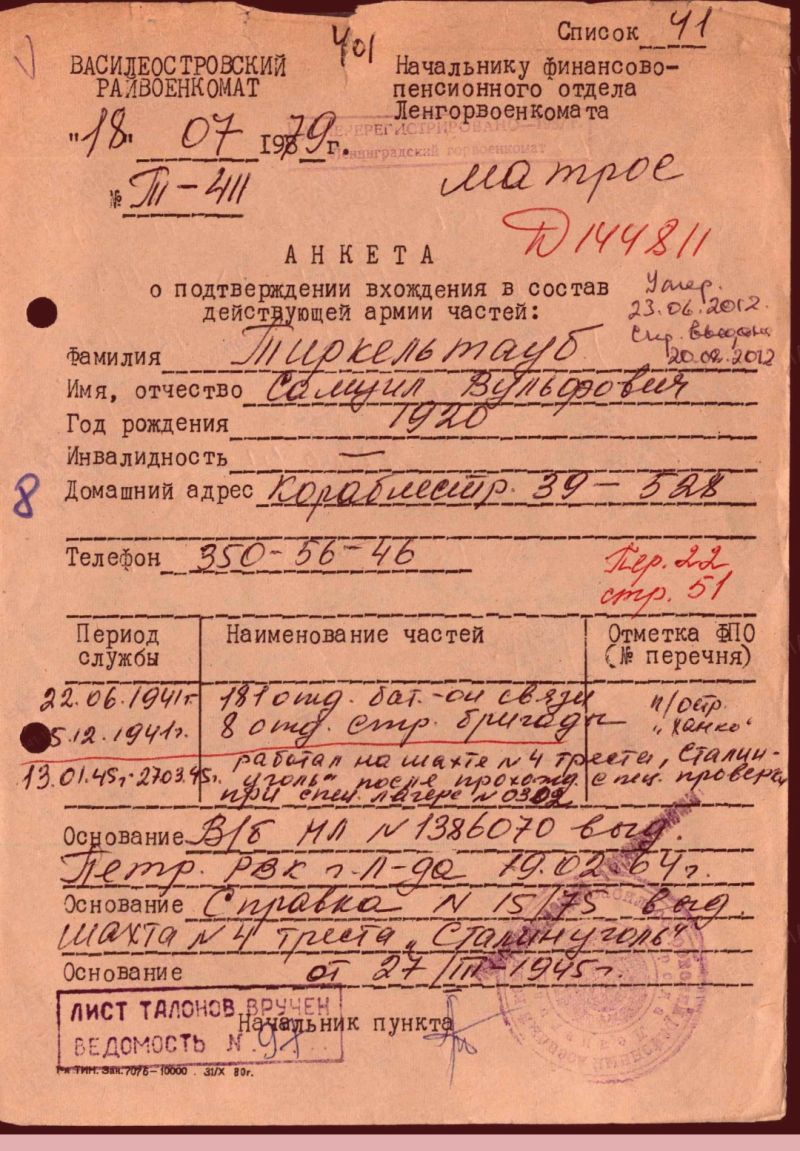 401
Список 41
ВАСИЛЕОСТРОВСКИЙ
РАЙВОЕНКОМАТ
Начальнику финансово-
пенсионного отдела
Ленгорвоенкомата
"18" 07 1979 г.
ПЕРЕРЕГИСТРИРОВАНО
Ленинградский горвоенкомат
№ Т-411
матрос
Д144811
АНКЕТА
о подтверждении вхождения в состав
действующей армии частей:
Умер.
23.06.2012.
Спр. выдана
20.02.2012
Фамилия Тиркельтауб
Имя, отчество Самуил Вульфович
Год рождения 1920
Инвалидность —
8
Домашний адрес Кораблестр. 39-528
Телефон 350-56-46
Пер. 22
стр. 51
Период службы
Наименование частей
Отметка ФПО
(№ перечня)
22.06.1941г. 181 отд. бат-он связи п/остр.
5.12.1941г. 8 отд. стр. бригады "Ханко"
13.01.45г-27.03.45г. работал на шахте N4 треста „Сталин-
уголь" после прохожд. спец. проверки
при спец. лагере N0302
Основание В/б НЛ N1386070 выд.
Петр. РВК г. Л-да 19.02.64г.
Основание Справка N 15/75 выд.
шахта N4 треста „Сталинуголь"
Основание от 27/III-1945г.
ЛИСТ ТАЛОНОВ ВРУЧЕН
ВЕДОМОСТЬ N 97
Начальник пункта
Тип. Зак. 7076-10000 31/X 80г.